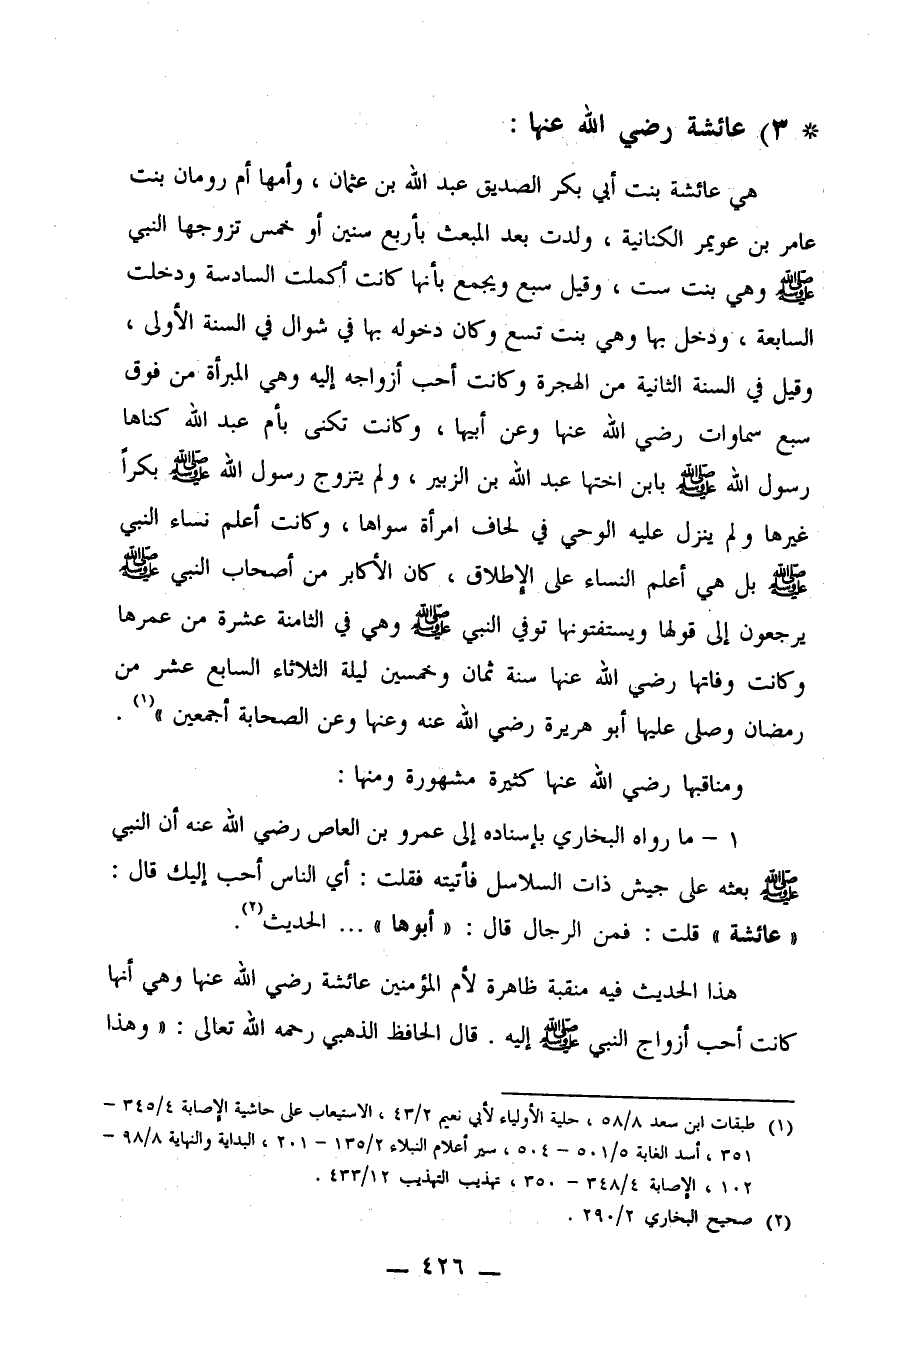 * ٣) عائشة رضي الله عنها :
هي عائشة بنت أبي بكر الصديق عبد الله بن عثمان ، وأمها أم رومان بنت
عامر بن عويمر الكنانية ، ولدت بعد المبعث بأربع سنين أو خمس تزوجها النبي
ﷺ وهي بنت ست ، وقيل سبع ويجمع بأنها كانت أكملت السادسة ودخلت
السابعة ، ودخل بها وهي بنت تسع وكان دخوله بها في شوال في السنة الأولى ،
وقيل في السنة الثانية من الهجرة وكانت أحب أزواجه إليه وهي المبرأة من فوق
سبع سماوات رضي الله عنها وعن أبيها ، وكانت تكنى بأم عبد الله كناها
رسول الله ﷺ بابن اختها عبد الله بن الزبير ، ولم يتزوج رسول الله ﷺ بكراً
غيرها ولم ينزل عليه الوحي في لحاف امرأة سواها ، وكانت أعلم نساء النبي
ﷺ بل هي أعلم النساء على الإطلاق ، كان الأكابر من أصحاب النبي ﷺ
يرجعون إلى قولها ويستفتونها توفي النبي ﷺ وهي في الثامنة عشرة من عمرها
وكانت وفاتها رضي الله عنها سنة ثمان وخمسين ليلة الثلاثاء السابع عشر من
رمضان وصلى عليها أبو هريرة رضي الله عنه وعنها وعن الصحابة أجمعين »(١) .
ومناقبها رضي الله عنها كثيرة مشهورة ومنها :
١ – ما رواه البخاري بإسناده إلى عمرو بن العاص رضي الله عنه أن النبي
ﷺ بعثه على جيش ذات السلاسل فأتيته فقلت : أي الناس أحب إليك قال :
« عائشة » قلت : فمن الرجال قال : « أبوها » ... الحديث(٢).
هذا الحديث فيه منقبة ظاهرة لأم المؤمنين عائشة رضي الله عنها وهي أنها
كانت أحب أزواج النبي ﷺ إليه . قال الحافظ الذهبي رحمه الله تعالى : « وهذا
(١) طبقات ابن سعد ٥٨/٨ ، حلية الأولياء لأبي نعيم ٤٣/٢ ، الاستيعاب على حاشية الإصابة ٣٤٥/٤ –
٣٥١ ، أسد الغابة ٥٠١/٥ – ٥٠٤ ، سير أعلام النبلاء ١٣٥/٢ – ٢٠١ ، البداية والنهاية ٩٨/٨ –
١٠٢ ، الإصابة ٣٤٨/٤ – ٣٥٠ ، تهذيب التهذيب ٤٣٣/١٢ .
(٢) صحيح البخاري ٢٩٠/٢ .
— ٤٢٦ —